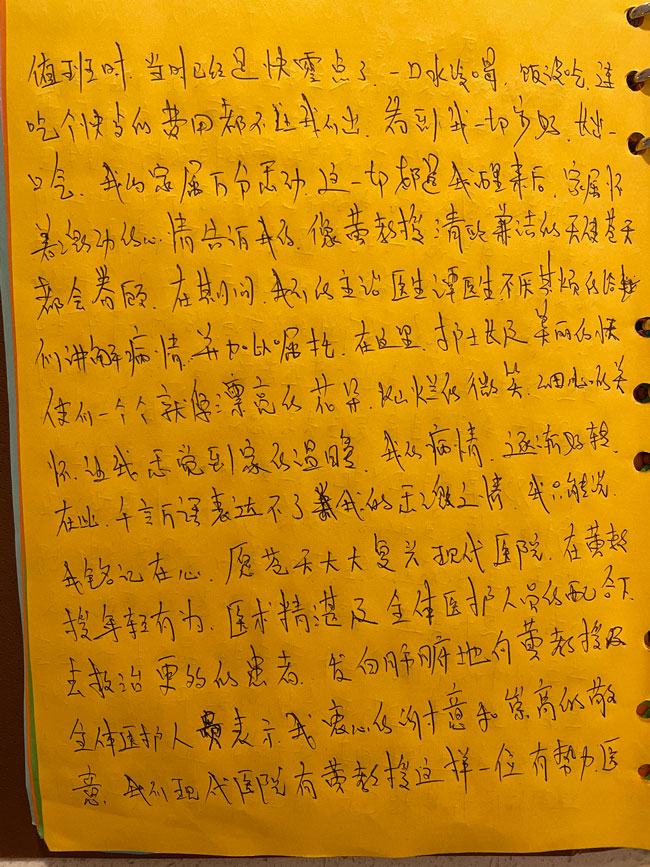 值班时,当时已经是快零点了,一口水没喝,饭没吃,连
吃个快餐的费用都不让我们出,看到我一切安好,
我的家属万分感动,这一切都是我醒来后,家属怀
着激动的心情告诉我的,像黄教授清廉兼洁的天使苍天
都会眷顾,在其间,我们的主治医生谭医生不厌其烦的给
们讲解病情,并加以嘱托,在这里,护士长及美丽的
使们一个个就像漂亮的花朵,灿烂的微笑,细心的关
怀,让我感觉到家的温暖,我的病情,逐渐好转,
在此,千言万语表达不了我的感激之情,我只能说,
我铭记在心,愿苍天大大复兴现代医院,在黄教
授年轻有为,医术精湛及全体医护人员的配合下
去救治更多的患者,发自肺腑地向黄教授及
全体医护人员表示我衷心的谢意和崇高的敬
意,我们现代医院有黄教授这样一位有势力医